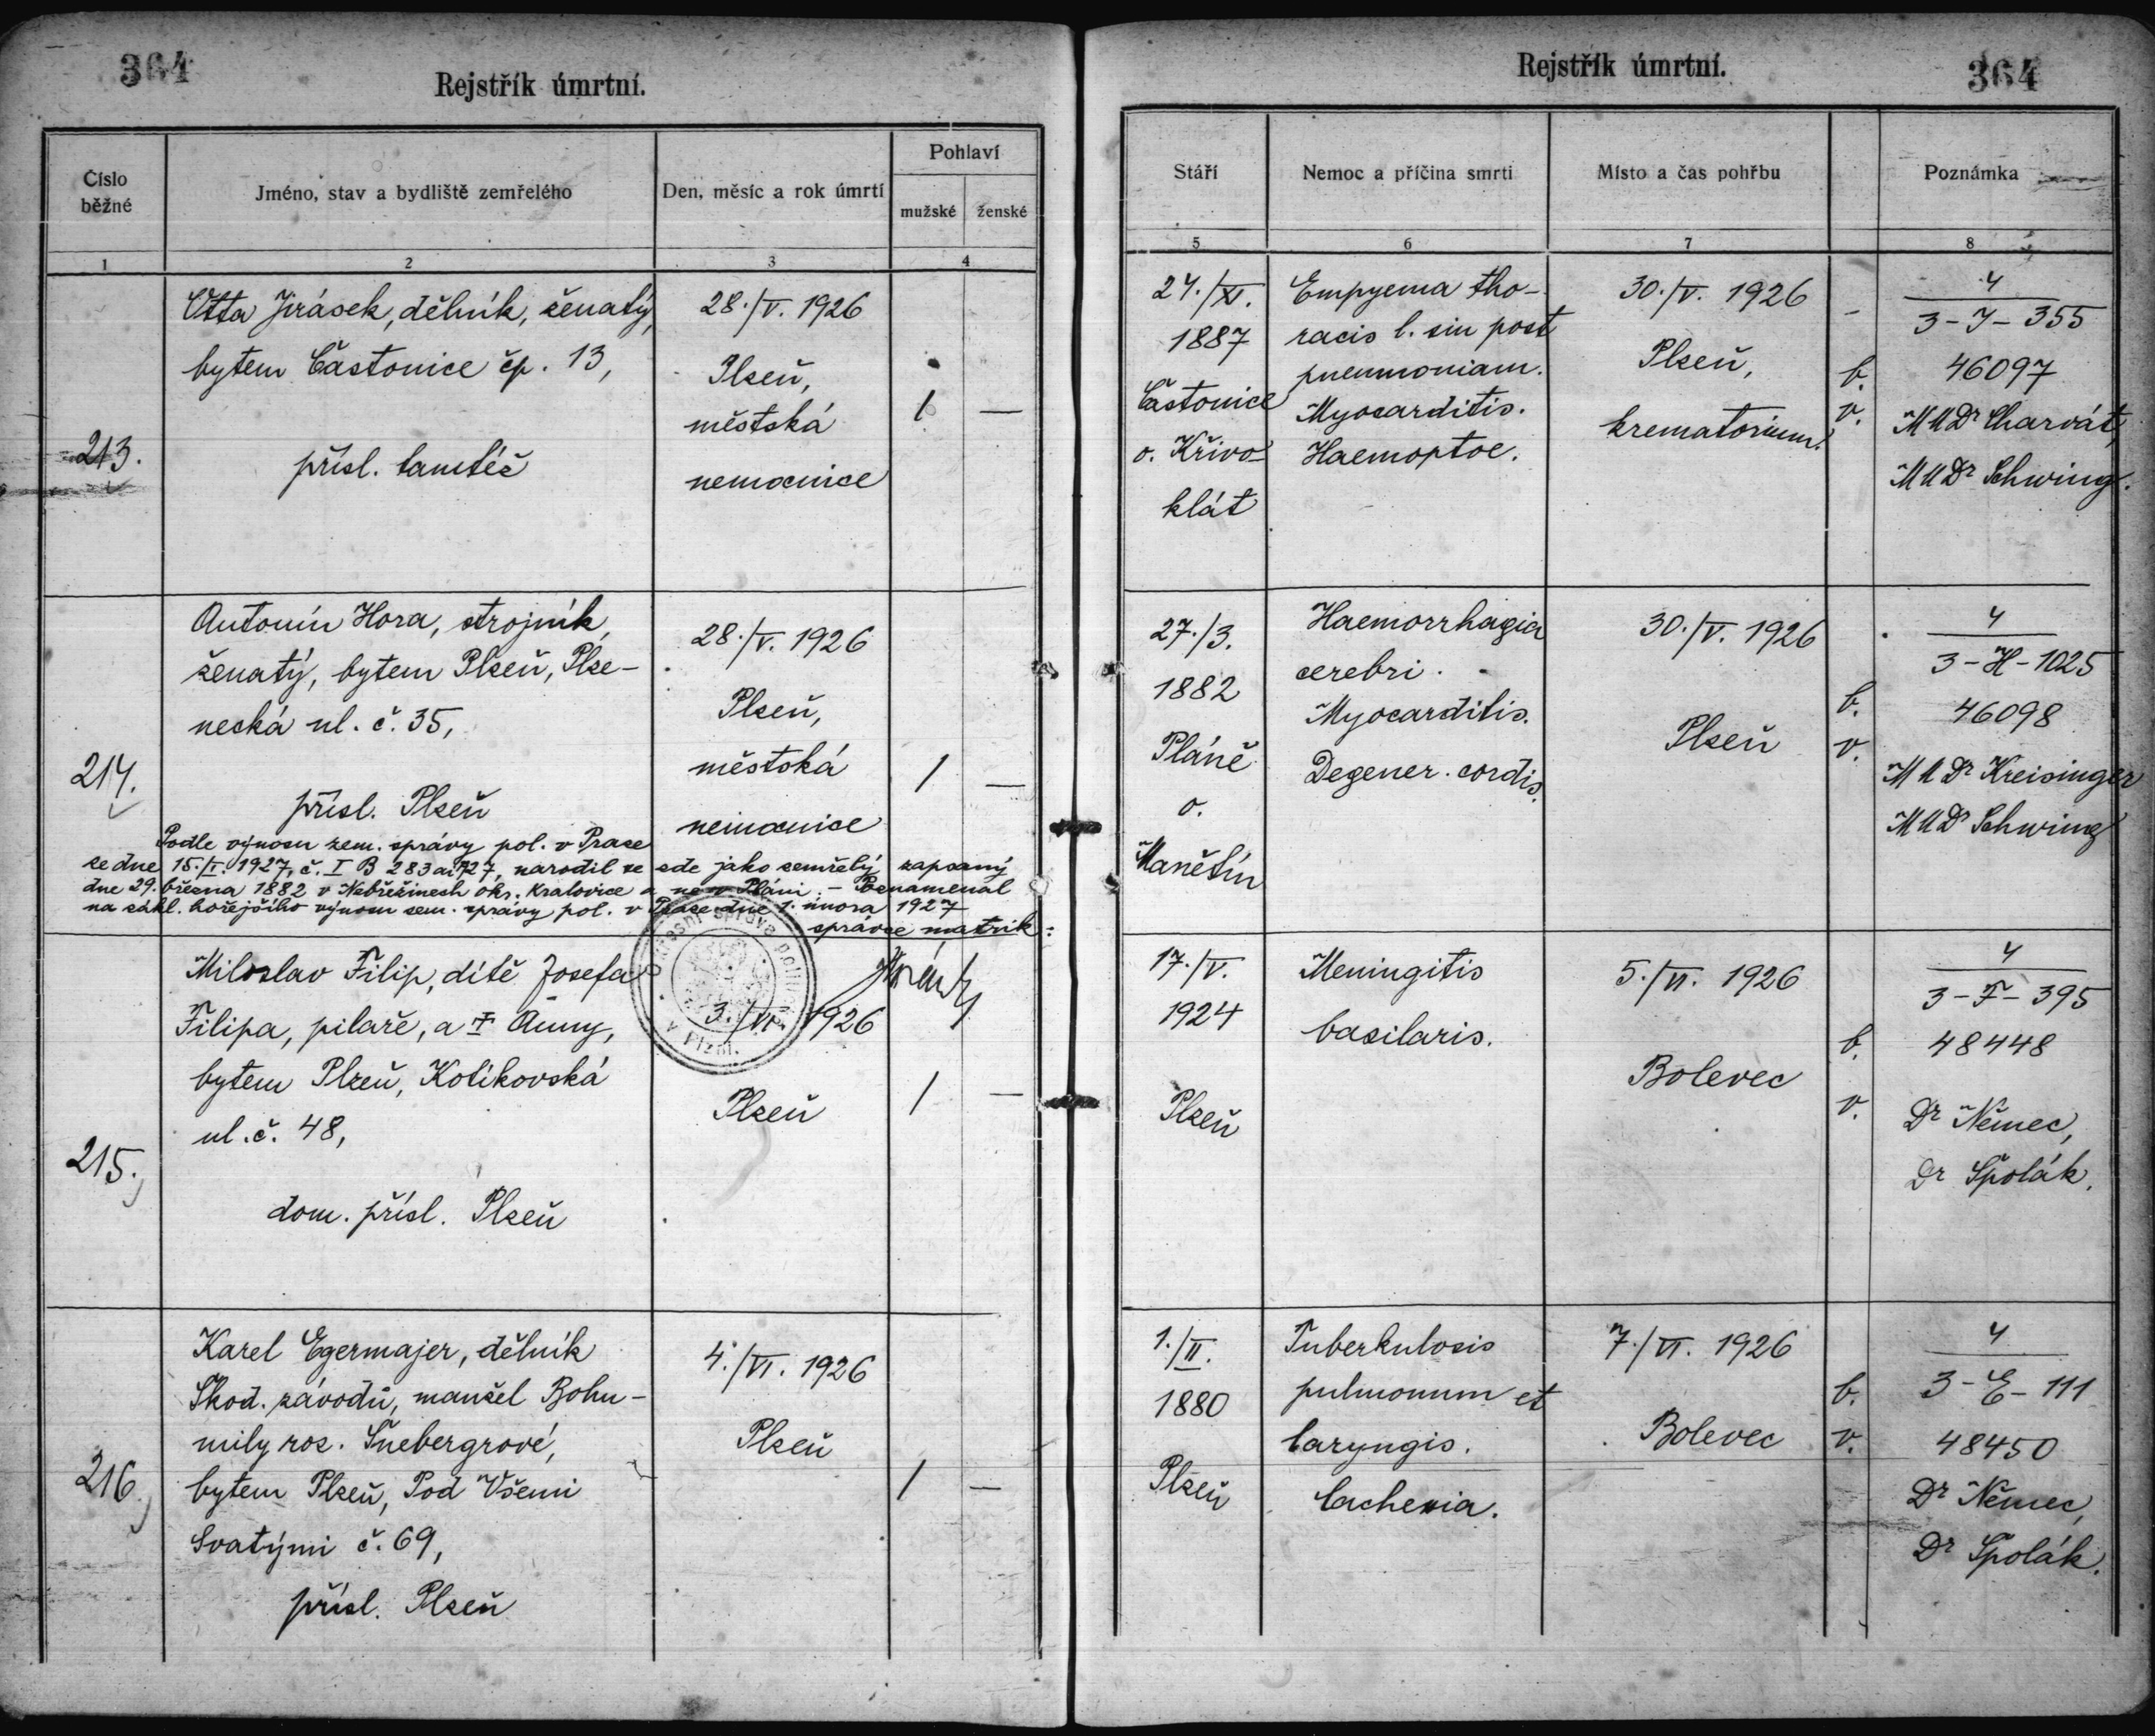 364
Rejstřík úmrtní.
Číslo běžné
Jméno, stav a bydliště zemřelého
Den, měsíc a rok úmrtí
Pohlaví
mužské
ženské
1
2
3
4
213.
Otta Jirásek, dělník, ženatý,
bytem Častonice čp. 13,
přísl. tamtéž
28./V. 1926
Plzeň,
městská
nemocnice
1 —
214.
Antonín Hora, strojník,
ženatý, bytem Plzeň, Plze-
necká ul. č. 35,
přísl. Plzeň
28./V. 1926
Plzeň,
městská
nemocnice
1 —
Podle výnosu zem. správy pol. v Praze
ze dne 15./I. 1927, č. I B 283 ai 727, narodil se zde jako zemřelý zapsaný
dne 29. března 1882 v Nebřežinech okr. Kralovice a ne v Pláni. – Poznamenal
na zákl. hořejšího výnosu zem. správy pol. v Praze dne 1. února 1927
správce matrik:
Okresní správa politická
v Plzni.
215.
Miloslav Filip, dítě Josefa
Filipa, pilaře, a † Anny,
bytem Plzeň, Kotikovská
ul. č. 48,
dom. přísl. Plzeň
3./VI. 1926
Plzeň
1 —
216.
Karel Egermajer, dělník
Škod. závodů, manžel Bohu-
mily roz. Šnebergrové,
bytem Plzeň, Pod Všemi
Svatými č. 69,
přísl. Plzeň
4./VI. 1926
Plzeň
1 —
Rejstřík úmrtní.
364
Stáří
Nemoc a příčina smrti
Místo a čas pohřbu
Poznámka
5
6
7
8
24./XI.
1887
Častonice
o. Křivo-
klát
Empyema tho-
racis l. sin post
pneumoniam.
Myocarditis.
Haemoptoe.
30./V. 1926
Plzeň,
krematorium.
b.
v.
4
3-J-355
46097
MUDr Charvát,
MUDr Schwing.
27./3.
1882
Pláně
o.
Manětín
Haemorrhagia
cerebri.
Myocarditis.
Degener. cordis.
30./V. 1926
Plzeň
b.
v.
4
3-H-1025
46098
MUDr Kreisinger
MUDr Schwing
17./V.
1924
Plzeň
Meningitis
basilaris.
5./VI. 1926
Bolevec
b.
v.
4
3-F-395
48448
Dr Němec,
Dr Špolák.
1./II.
1880
Plzeň
Tuberkulosis
pulmonum et
laryngis.
Cachexia.
7./VI. 1926
Bolevec
b.
v.
4
3-E-111
48450
Dr Němec,
Dr Špolák.